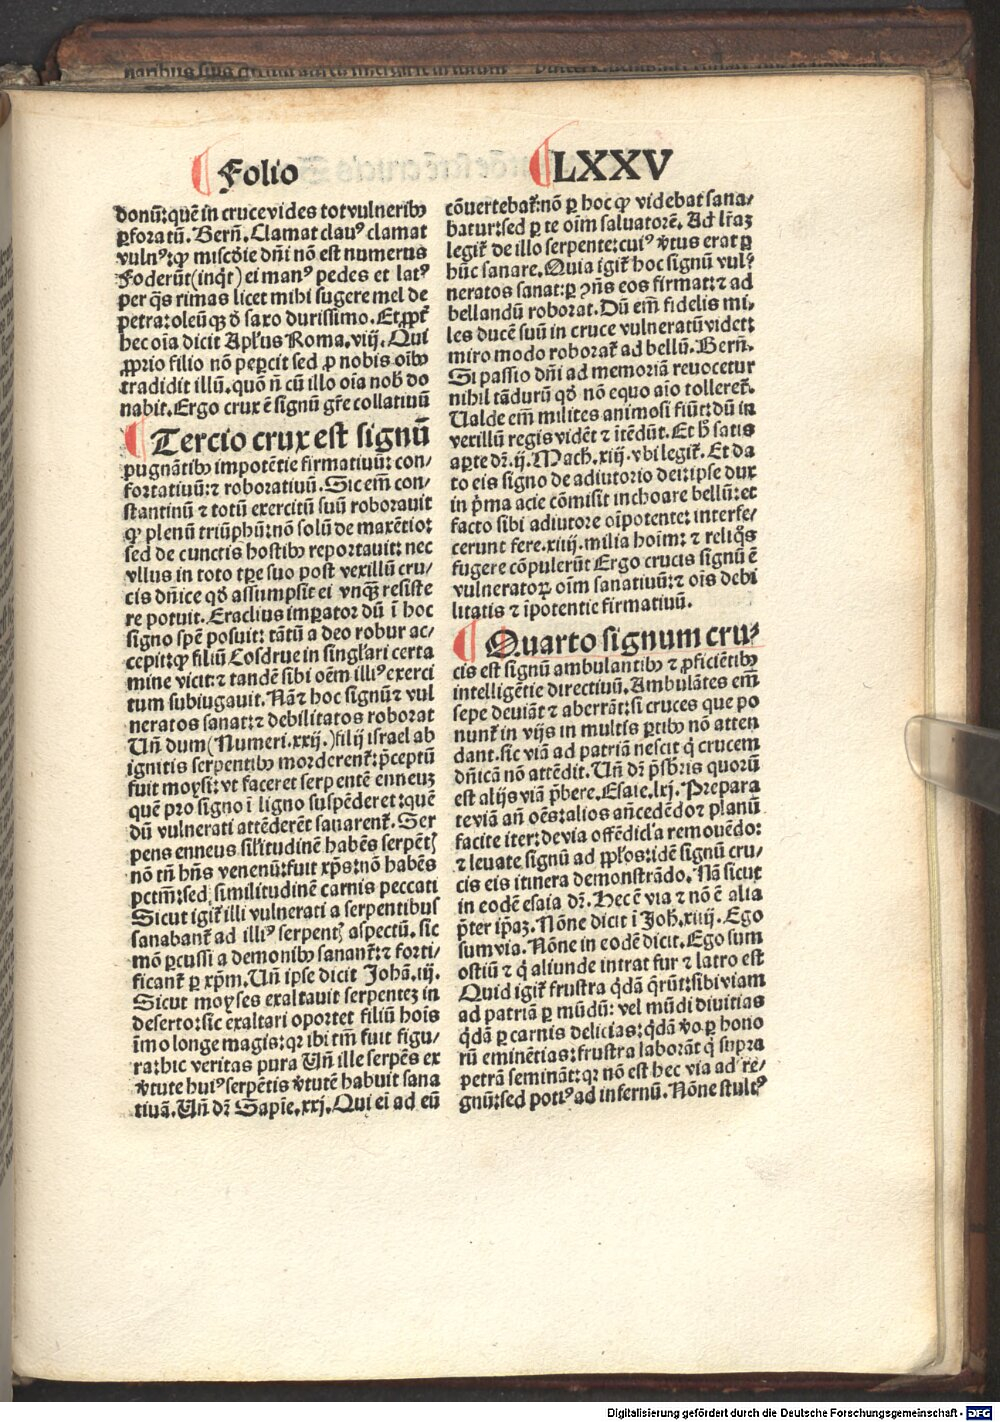 Folio LXXV
donū: quē in cruce vides tot vulneribꝰ
ꝑforatū. Berñ. Clamat clauꝰ clamat
vulnꝰ: ꝙ miscðie dñi nō est numerus
Foderūt (inq̇t) ei manꝰ pedes et latꝰ
per q̄s rimas licet mihi sugere mel de
petra: oleūqꝫ đ saxo durissimo. Et ꝓpt̄
hec oīa dicit Apl̄us Roma. viij. Qui
ꝓprio filio nō peꝑcit sed ꝓ nobis oībꝰ
tradidit illū. quō ñ cū illo oīa nob̄ do
nabit. Ergo crux ē signū gr̄e collatiuū
Tercio crux est signū
pugnātibꝰ impotētie firmatiuū: con/
fortatiuū: ⁊ roboratiuū. Sic em̄ con/
stantinū ⁊ totū exercitū suū roborauit
ꝙ plenū triūphū: nō solū de maxētio:
sed de cunctis hostibꝰ reportauit: nec
vllus in toto tꝑe suo post vexillū cru/
cis dñice qđ assumpsit ei vnqꝫ resiste
re potuit. Eraclius imꝑator dū ī hoc
signo spē posuit: tātū a deo robur ac/
cepit: ꝙ filiū Cosdrue in singl̄ari certa
mine vicit: ⁊ tandē sibi oēm illiꝰ exerci
tum subiugauit. Nā ⁊ hoc signū ⁊ vul
neratos sanat: ⁊ debilitatos roborat
Vñ dum (Numeri. xxij.) filij israel ab
ignitis serpentibꝰ morderent̄: p̄ceptū
fuit moysi: vt faceret serpentē enneuꝫ
quē pro signo ī ligno suspēderet: quē
dū vulnerati attēderēt sanarent̄. Ser
pens enneus sil̄itudinē habēs serpētꝭ
nō tñ hñs venenū: fuit xp̄s: nō habēs
pctm̄: sed similitudinē carnis peccati
Sicut igit̄ illi vulnerati a serpentibus
sanabant̄ ad illiꝰ serpentꝭ aspectū. sic
mō ꝑcussi a demonibꝰ sanant̄: ⁊ forti/
ficant̄ ꝑ xp̄m. Vñ ipse dicit Johā. iij.
Sicut moyses exaltauit serpenteꝫ in
deserto: sic exaltari oportet filiū hoīs
īmo longe magis: qꝛ ibi tm̄ fuit figu/
ra: hic veritas pura Vñ ille serpēs ex
v̄tute huiꝰ serpētis v̄tutē habuit sana
tiuā. Vñ dꝛ Sapīe. xxj. Qui ei ad eū
cōuertebat̄: nō ꝑ hoc ꝙ videbat sana/
batur: sed ꝑ te oīm saluatorē. Ad lr̄aꝫ
legit̄ de illo serpente: cuiꝰ v̄tus erat ꝑ
hūc sanare. Quia igit̄ hoc signū vulꝰ
neratos sanat: ꝑ ꝯñs eos firmat: ⁊ ad
bellandū roborat. Dū em̄ fidelis mi/
les ducē suū in cruce vulneratū videt:
miro modo roborat̄ ad bellū. Berñ.
Si passio dñi ad memoriā reuocetur
nihil tā durū qđ nō equo aīo tolleret̄.
Ualde em̄ milites animosi fiūt: dū in
vexillū regis vidēt ⁊ ītēdūt. Et h̄ satis
aꝑte dꝛ. ij. Mach. xiij. vbi legit̄. Et da
to eis signo de adiutorio dei: ipse dux
in p̄ma acie cōmisit inchoare bellū: et
facto sibi adiutore oīpotente: interfe/
cerunt fere. xiiij. milia hoīm: ⁊ reliq̄s
fugere cōpulerūt Ergo crucis signū ē
vulneratoꝝ oīm sanatiuū: ⁊ oīs debi
litatis ⁊ īpotentie firmatiuū.
Quarto signum cru/
cis est signū ambulantibꝰ ⁊ ꝓficiētibꝰ
intelligētie directiuū. Ambulātes em̄
sepe deuiāt ⁊ aberrāt: si cruces que po
nunt̄ in vijs in multis ꝑtibꝰ nō atten
dant. sic viā ad patriā nescit q̇ crucem
dñicā nō attēdit. Vñ dꝛ p̄sb̄ris quorū
est alijs viā p̄bere. Esaie. lxj. Prepara
te viā añ oēs: alios añcedēdo ⁊ planū
facite iter: deuia offēdicl̄a remouēdo:
⁊ leuate signū ad ꝓpl̄os: idē signū cru/
cis eis itinera demonstrādo. Nā sicut
in eodē esaia dꝛ. Hec ē via ⁊ nō ē alia
p̄ter ip̄aꝫ. Nōne dicit ī Joh. xiiij. Ego
sum via. Nōne in eodē dicit. Ego sum
ostiū ⁊ q̇ aliunde intrat fur ⁊ latro est
Quid igit̄ frustra q̇dā q̄rūt: sibi viam
ad patriā ꝑ mūdū: vel mūdi diuitias
q̇dā ꝑ carnis delicias: q̇dā v̄o ꝑ hono
rū eminētias: frustra laborāt q̇ supra
petrā semināt: qꝛ nō est hec via ad re/
gnū: sed potiꝰ ad infernū. Nōne stultꝰ
Digitalisierung gefördert durch die Deutsche Forschungsgemeinschaft - DFG